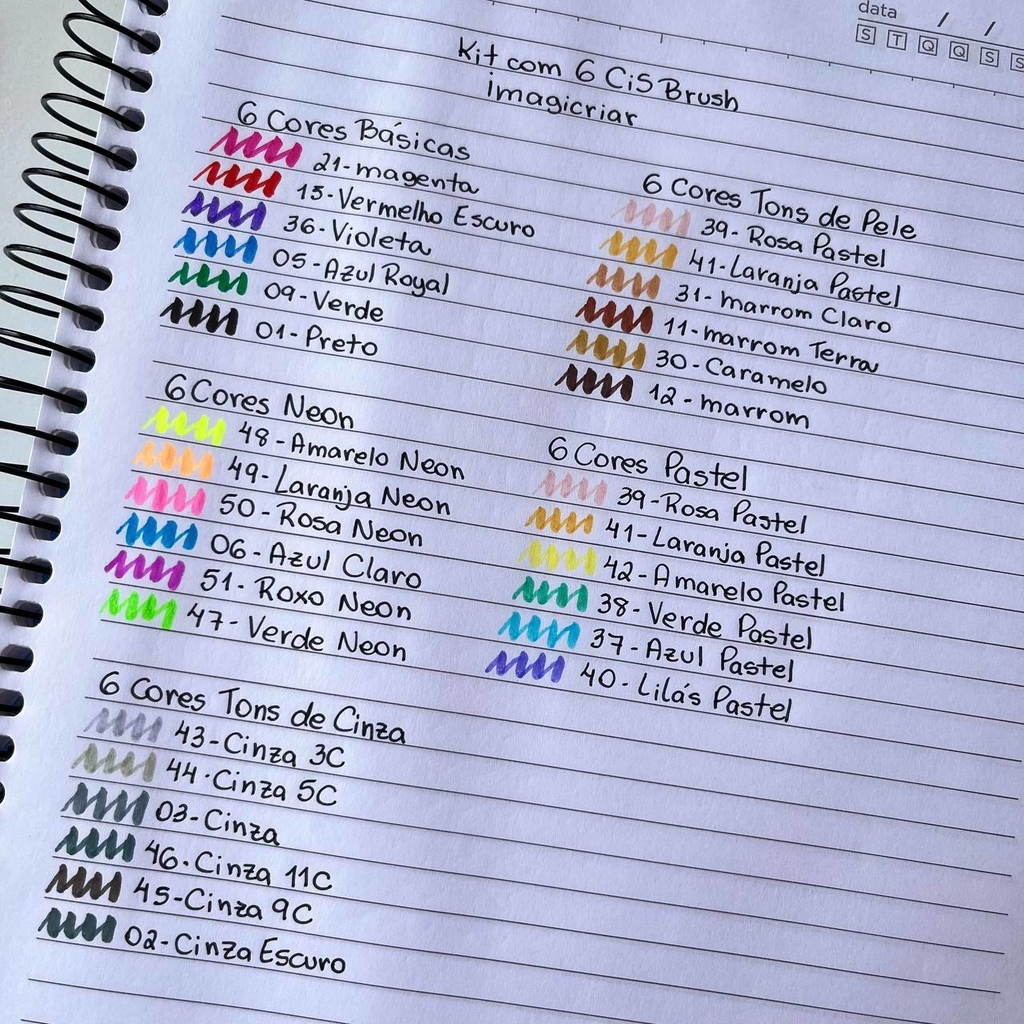 data / /
S T Q Q S S
Kit com 6 CiS Brush
imagicriar
6 Cores Básicas
21-magenta
15-Vermelho Escuro
36-Violeta
05-Azul Royal
09-Verde
01-Preto
6 Cores Tons de Pele
39-Rosa Pastel
41-Laranja Pastel
31-marrom Claro
11-marrom Terra
30-Caramelo
12-marrom
6 Cores Neon
48-Amarelo Neon
49-Laranja Neon
50-Rosa Neon
06-Azul Claro
51-Roxo Neon
47-Verde Neon
6 Cores Pastel
39-Rosa Pastel
41-Laranja Pastel
42-Amarelo Pastel
38-Verde Pastel
37-Azul Pastel
40-Lilás Pastel
6 Cores Tons de Cinza
43-Cinza 3C
44-Cinza 5C
03-Cinza
46-Cinza 11C
45-Cinza 9C
02-Cinza Escuro